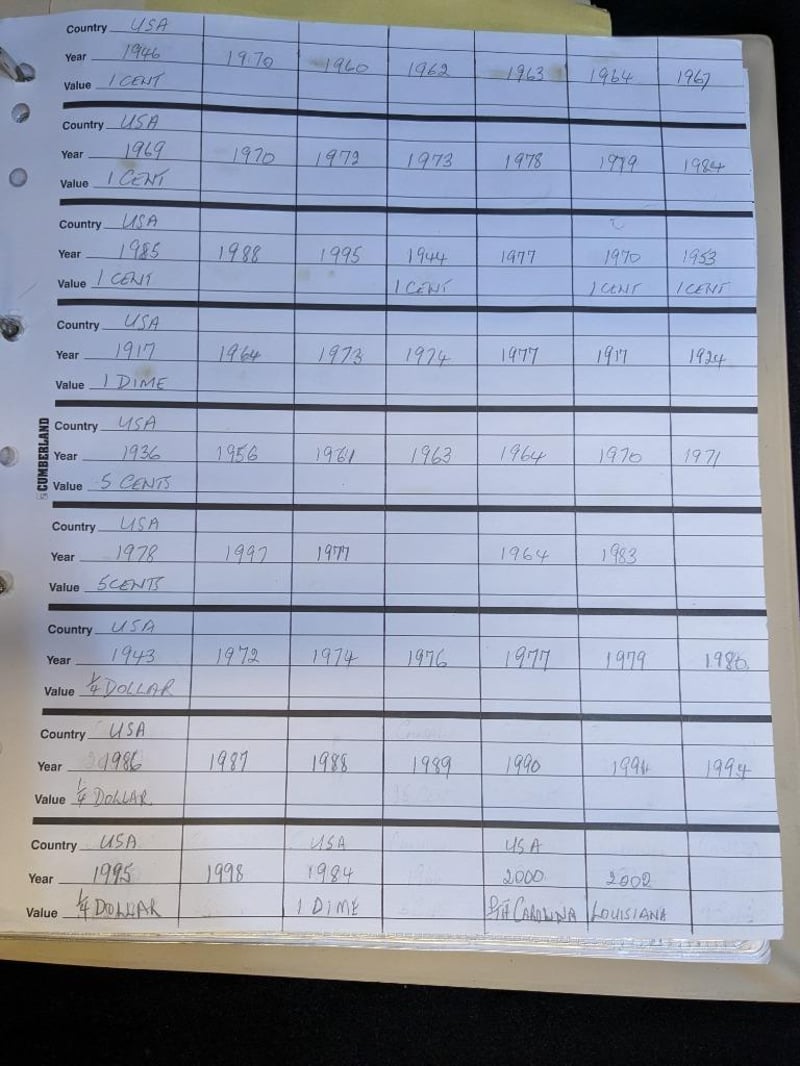 Country USA
Year 1946 1970 1960 1962 1963 1964 1967
Value 1 CENT
Country USA
Year 1969 1970 1972 1973 1978 1979 1984
Value 1 CENT
Country USA
Year 1985 1988 1995 1944 1977 1970 1953
Value 1 CENT 1 CENT 1 CENT 1 CENT
Country USA
Year 1917 1964 1973 1974 1977 1917 1924
Value 1 DIME
CUMBERLAND
Country USA
Year 1936 1956 1961 1963 1964 1970 1971
Value 5 CENTS
Country USA
Year 1978 1997 1977 1964 1983
Value 5 CENTS
Country USA
Year 1943 1972 1974 1976 1977 1979 1980
Value 1/4 DOLLAR
Country USA
Year 1986 1987 1988 1989 1990 1994
Value 1/4 DOLLAR
Country USA USA USA
Year 1995 1998 1984 2000 2002
Value 1/4 DOLLAR 1 DIME STH CAROLINA LOUISIANA